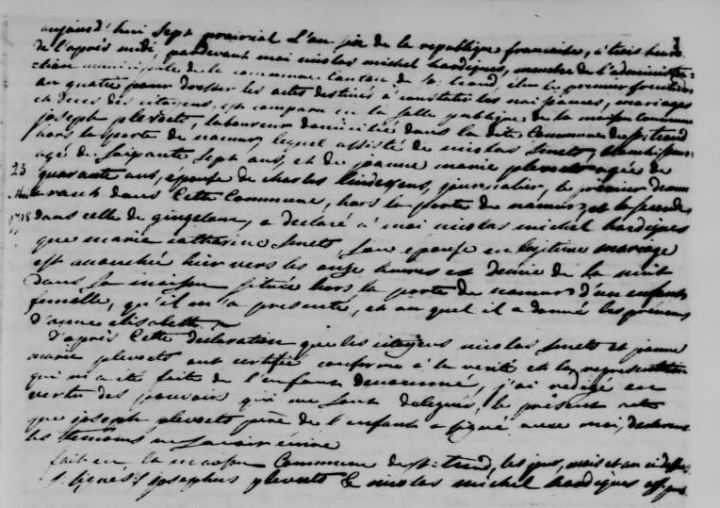 aujourd'hui sept prairial L'an six de la republique francaise, à trois heures
de l'après midi, pardevant moi nicolas michel hardiques, membre de l'administra-
tion municipale de la commune Canton de St. trond, élu le premier
an quatre pour dresser les actes destinés à constater les naissances, mariages
et deces des citoyens, est comparu en la salle publique de la maison Commune
joseph plevoets, laboureur domicilié dans la dite Commune de St. trond
hors la porte de namur, lequel assisté de nicolas Smets,
agé de soixante sept ans, et de jeanne marie plevoets agée de
25
quarante ans, epouse de charles Lindeyens, journalier, le premier demeu
rant dans cette Commune, hors la porte de namur, et la seconde
1798
dans celle de gingelom, a declaré à moi nicolas michel hardiques
que marie catherine Smets son epouse en legitime mariage
est accouchée hier vers les onze heures et demie de la nuit
dans sa maison située hors la porte de namur d'un enfant
femelle, qu'il m'a presenté, et au quel il a donné les prénoms
d'anne elisabeth.
D'après cette declaration que les citoyens nicolas Smets et jeanne
marie plevoets ont certifié conforme à la verité et la representation
qui m'a été faite de l'enfant denommé, j'ai redigé en
vertu des pouvoirs qui me sont delegués, le présent acte
que joseph plevoets père de l'enfant a signé avec moi,
les temoins ne savoir écrire
fait en la maison Commune de St. trond, les jour, mois et an ci dessus
signés josephus plevoets & nicolas michel hardiques